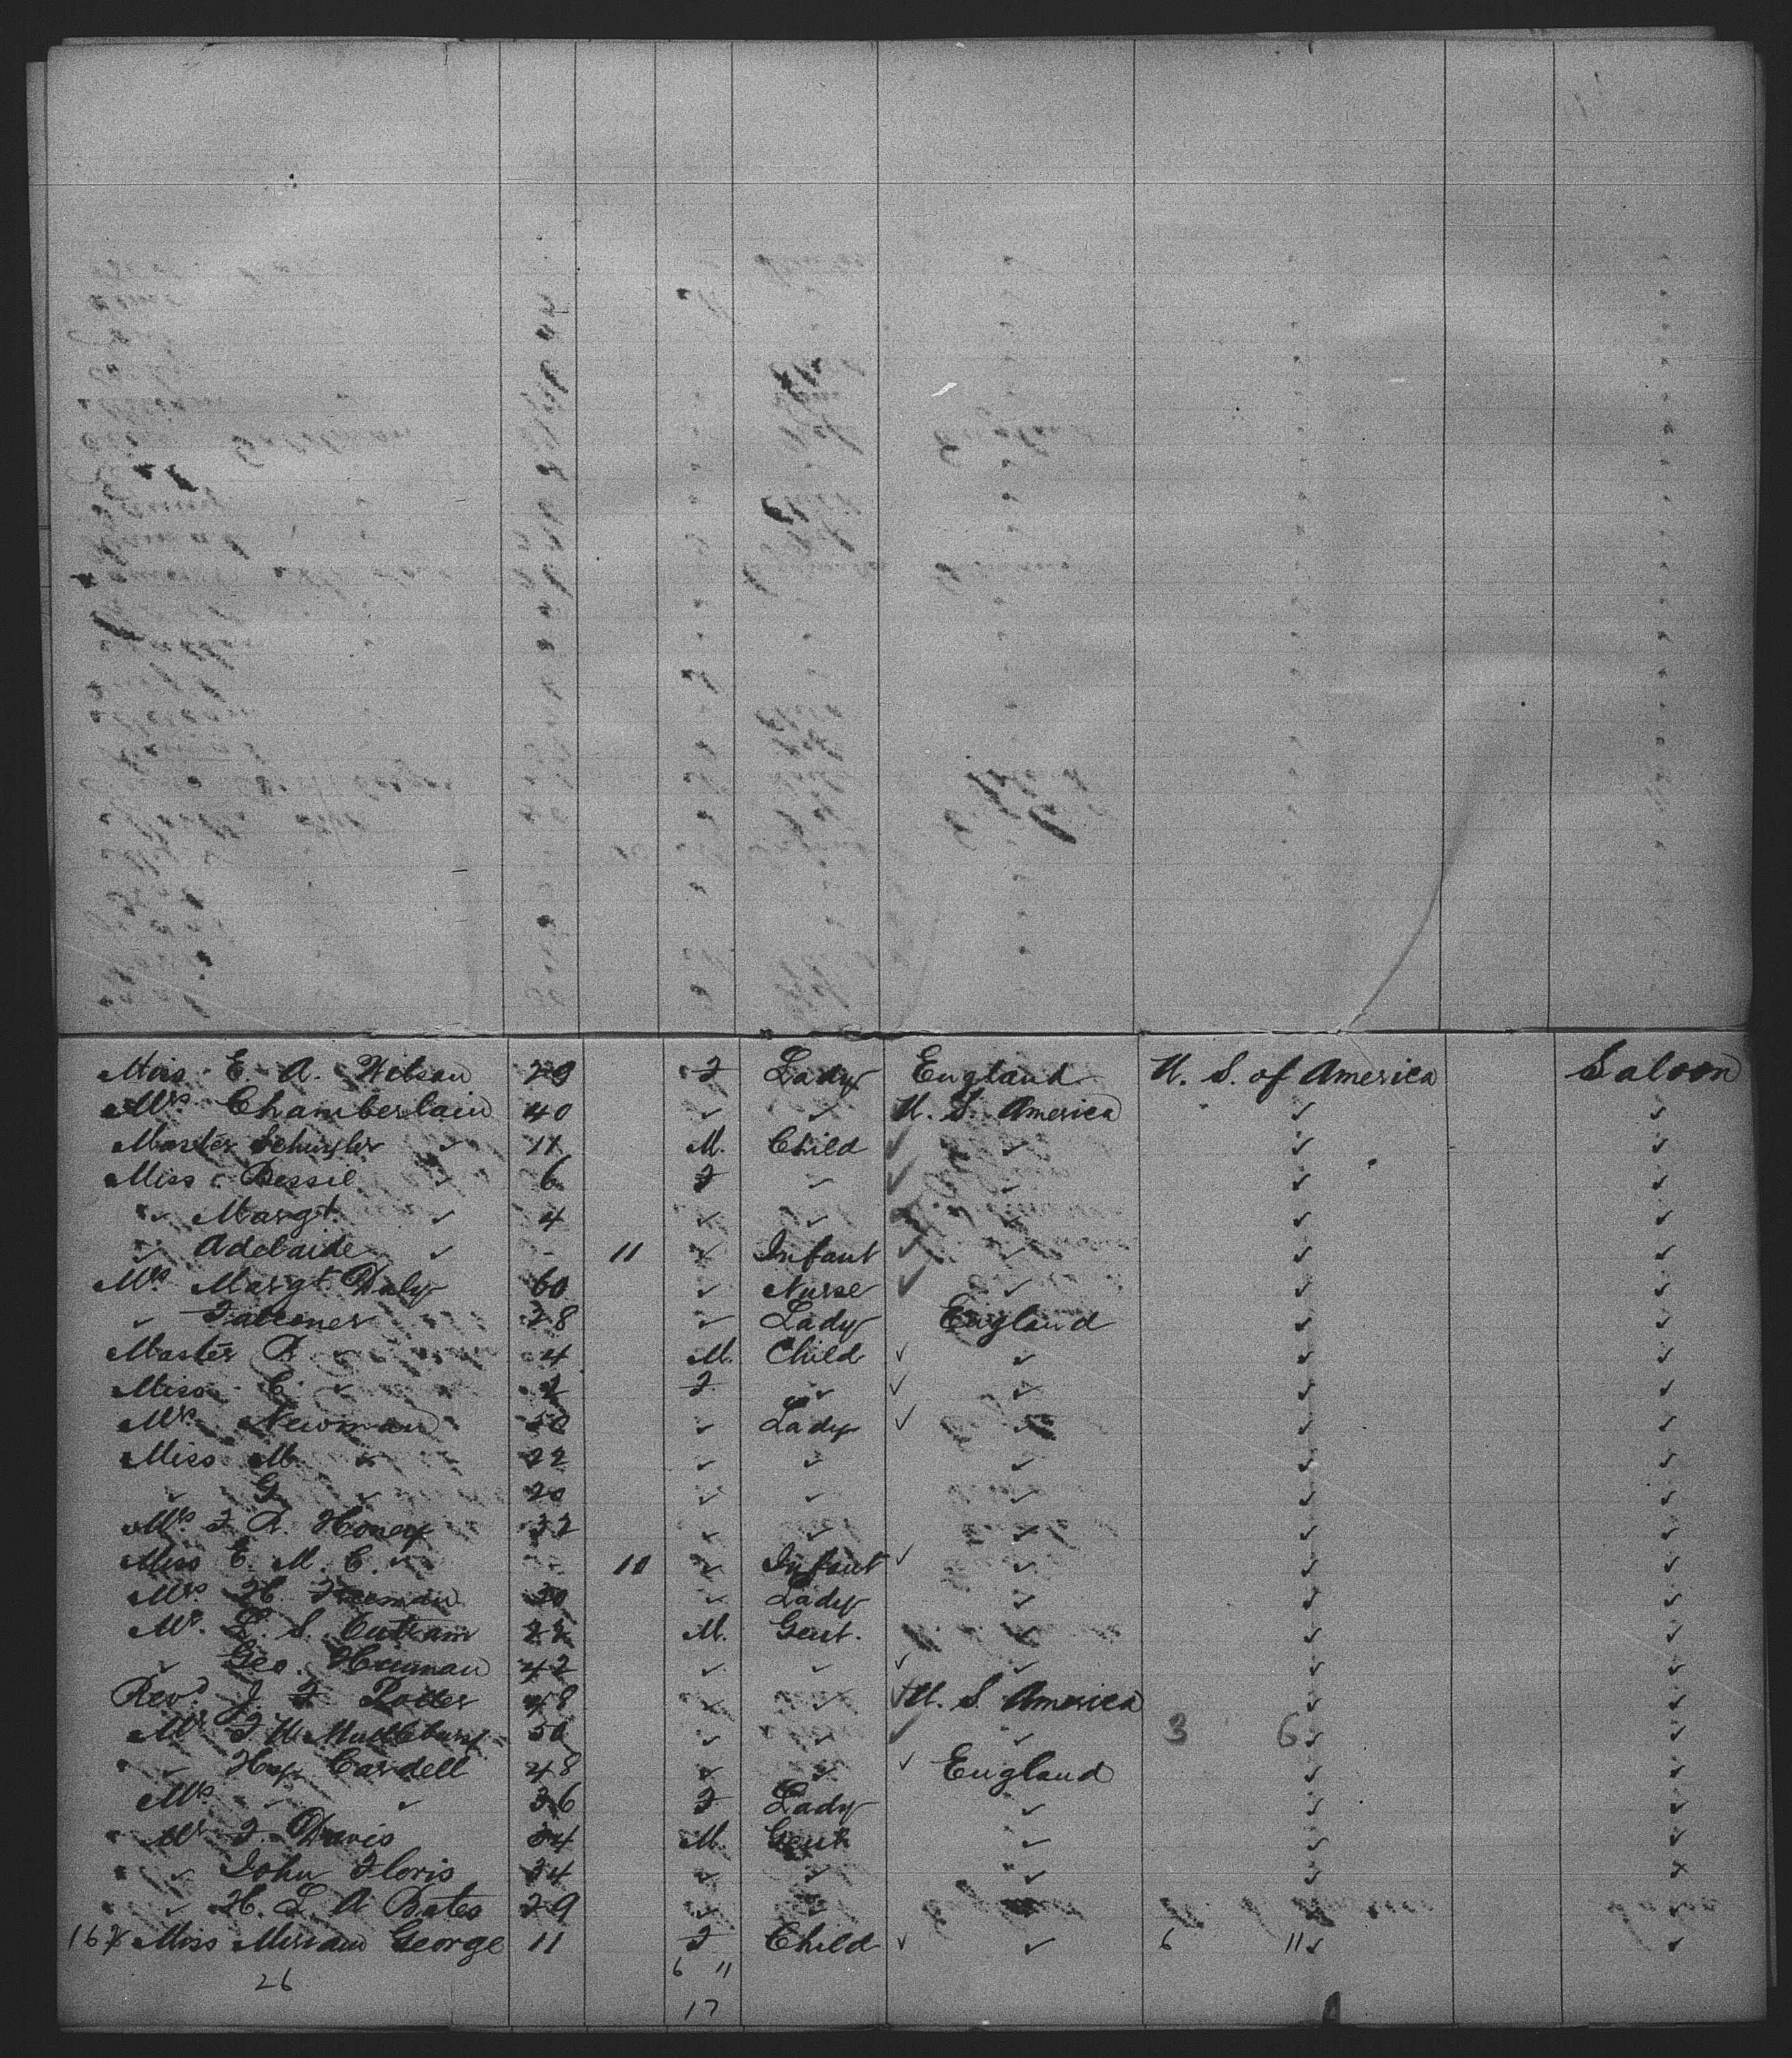 Miss E. A. Wilson 29 F Lady England U. S. of America Saloon
Mrs Chamberlain 40 ✓ ✓ U. S. America ✓ ✓
Master Schuyler ✓ 11 M. Child ✓ ✓ ✓ ✓
Miss Bessie ✓ 6 F ✓ ✓ ✓ ✓ ✓
✓ Margt. ✓ 4 ✓ ✓ ✓ ✓ ✓ ✓
✓ Adelaide ✓ - 11 ✓ Infant ✓ ✓ ✓ ✓
Mrs Margt. Daly 60 ✓ Nurse ✓ ✓ ✓ ✓
✓ Falconer 38 ✓ Lady England ✓ ✓
Master R ✓ 4 M. Child ✓ ✓ ✓ ✓
Miss C. ✓ 2 F ✓ ✓ ✓ ✓ ✓
Mrs Newman 50 ✓ Lady ✓ ✓ ✓ ✓
Miss M. ✓ 22 ✓ ✓ ✓ ✓ ✓
✓ G. ✓ 20 ✓ ✓ ✓ ✓ ✓
Mrs F. R. Honey 32 ✓ ✓ ✓ ✓ ✓
Miss E. M. C. ✓ - 10 ✓ Infant ✓ ✓ ✓ ✓
Mrs H. Freeman 30 ✓ Lady ✓ ✓ ✓
Mr. L. S. Outram 22 M. Gent. ✓ ✓ ✓
✓ Geo. 42 ✓ ✓ ✓ ✓ ✓ ✓
Revd J F 48 ✓ ✓ ✓ U. S. America ✓ ✓
Mr F. W. 50 ✓ ✓ ✓ ✓ 3 6 ✓ ✓
✓ Hy. Cardell 48 ✓ ✓ ✓ England ✓ ✓
Mrs ✓ ✓ 36 F Lady ✓ ✓ ✓
Mr F. Davis 34 M. Gent ✓ ✓ ✓
✓ John Floris 34 ✓ ✓ ✓ ✓ ✓
✓ H. L. A Bates 29 ✓ ✓ ✓ ✓
Miss Miriam George 11 F Child ✓ ✓ 6 11 ✓ ✓
26 6 11
17